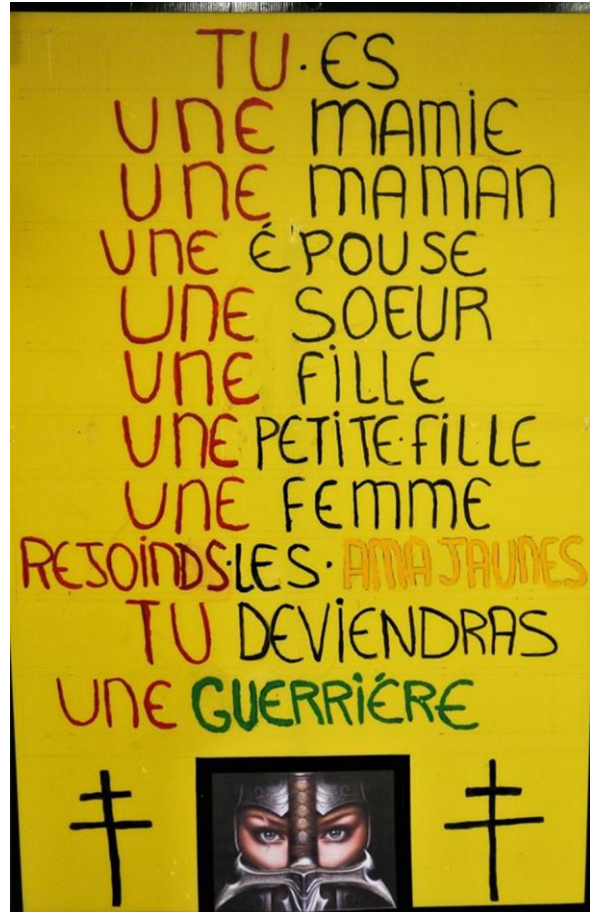 TU·ES
UNE MAMIE
UNE MAMAN
UNE ÉPOUSE
UNE SOEUR
UNE FILLE
UNE PETITE·FILLE
UNE FEMME
REJOINDS·LES·AMAJAUNES
TU DEVIENDRAS
UNE GUERRIÉRE